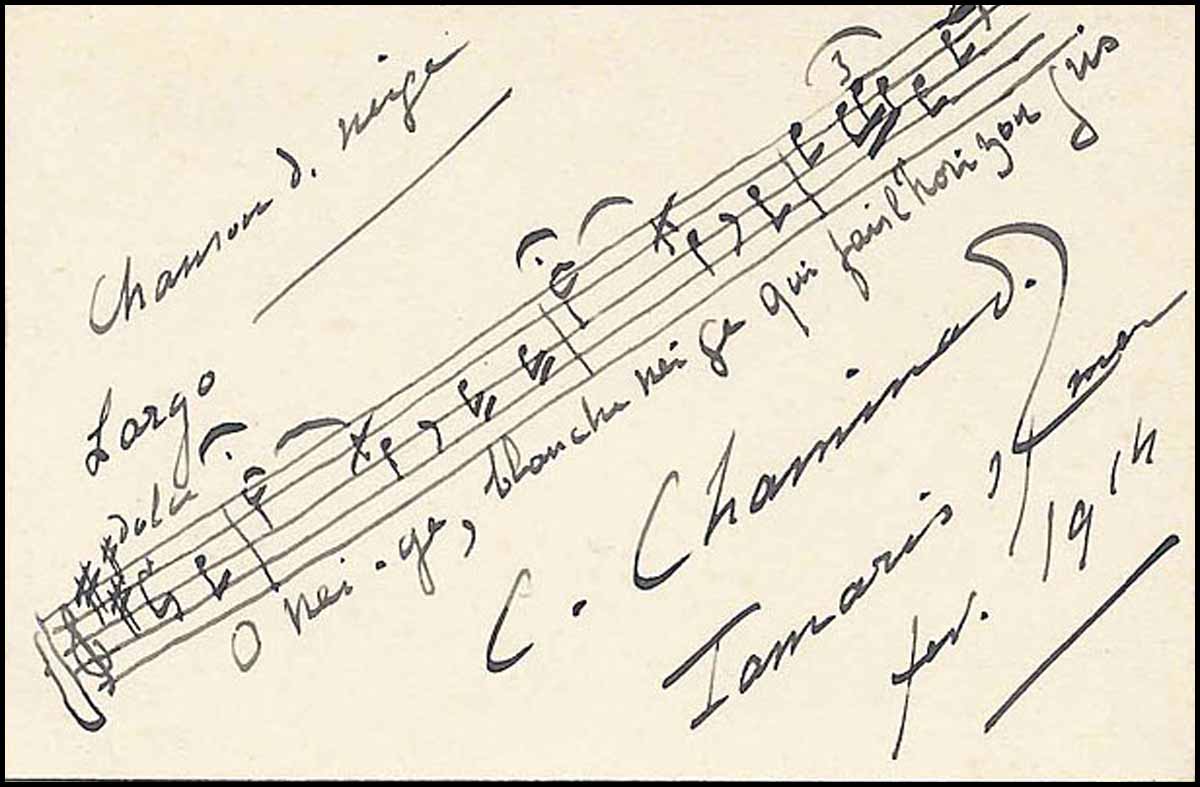 Chanson d. neige
Largo
dolce
3
O nei-ge, blanche neige qui fait l'horizon gris
C. Chaminade.
Tamaris s/mer
fev. 1914